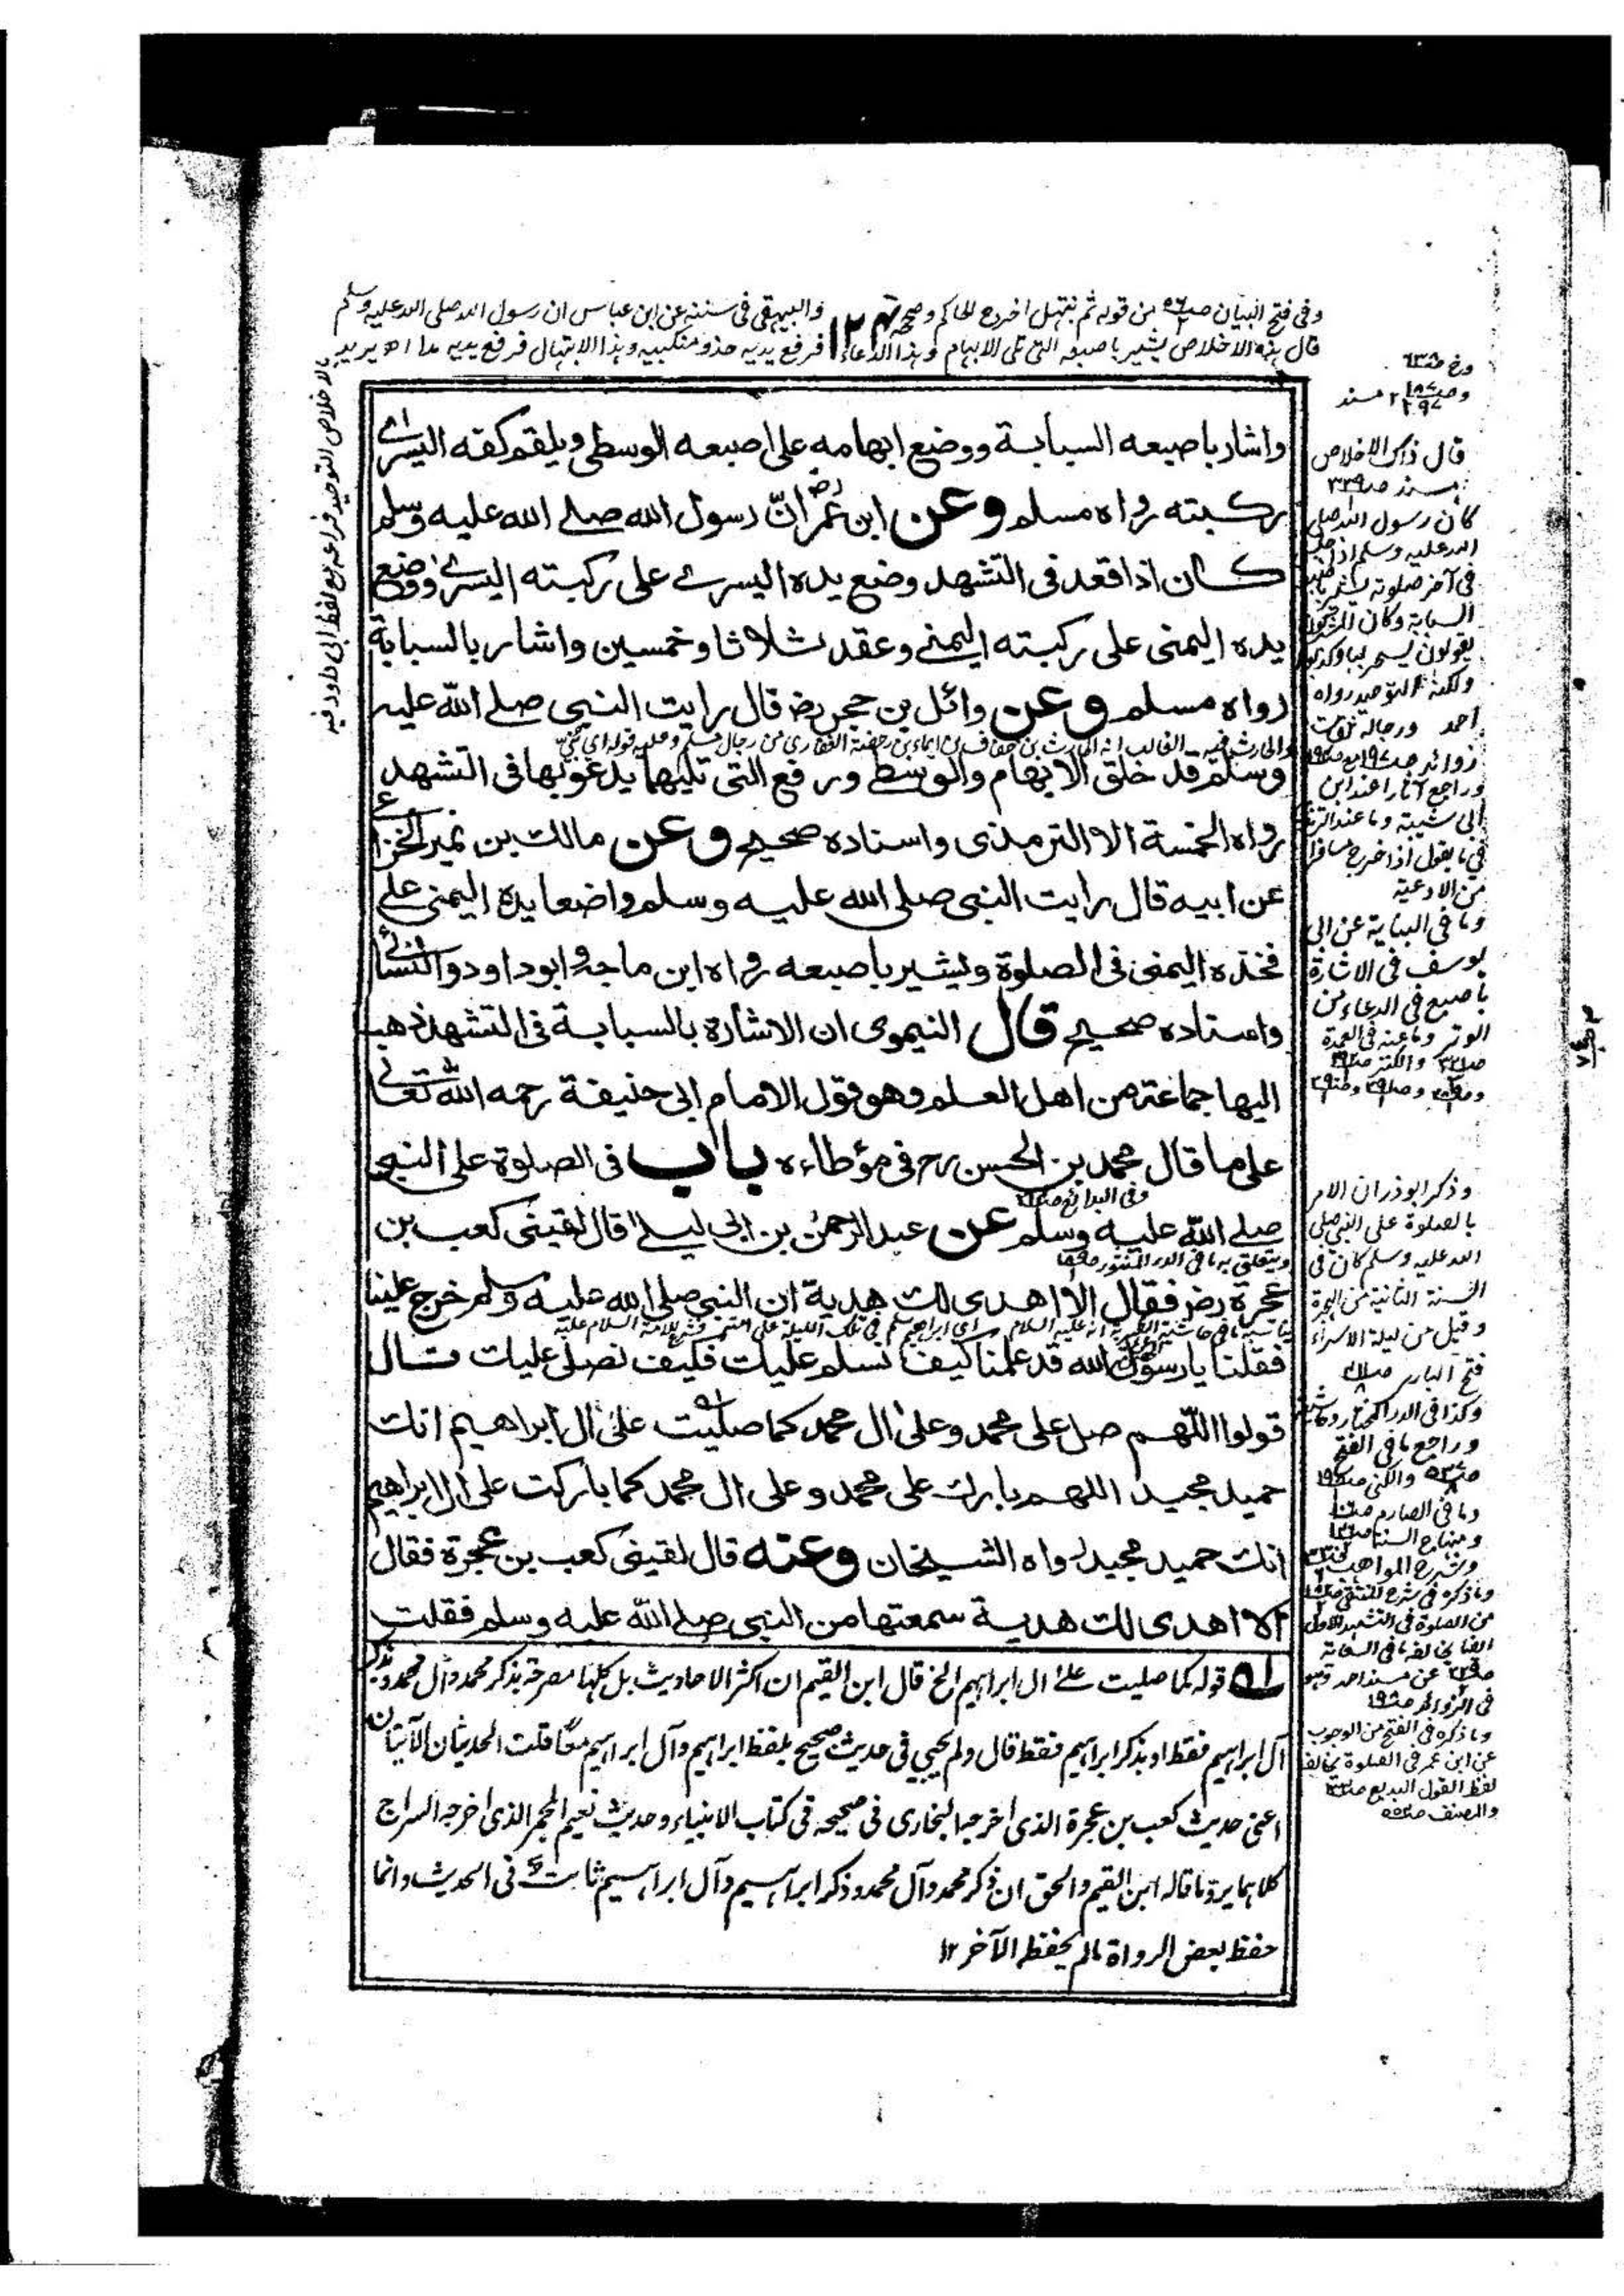 وفى فتح البيان من قوله ثم نبتهل اخرج الحاكم وصححه والبيهقى فى سننه عن ابن عباس ان رسول الله صلى الله عليه وسلم
قال هذا الاخلاص يشير باصبعه التى تلى الابهام وهذا الدعاء فرفع يديه حذو منكبيه وهذا الابتهال فرفع يديه مدا اه يريد
بالاخلاص التوحيد فراجعه مع لفظ ابى داود فيه
واشار باصبعه السبابة ووضع ابهامه على اصبعه الوسطى ويلقم كفه اليسرے
ركبته رواه مسلم وعن ابن عمر رض ان رسول الله صلے الله عليه وسلم
كان اذا قعد فى التشهد وضع يده اليسرے على ركبته اليسرے ووضع
يده اليمنى على ركبته اليمنے وعقد ثلاثا وخمسين واشار بالسبابة
رواه مسلم وعن وائل بن حجر رض قال رايت النبى صلے الله عليه
وسلم قد حلق الابهام والوسطے ورفع التى تليهما يدعو بها فى التشهد
رواه الخمسة الا الترمذى واسناده صحيح وعن مالك بن نمير الخزاعے
عن ابيه قال رايت النبى صلى الله عليه وسلم واضعا يده اليمنى علے
فخذه اليمنى فى الصلوة ويشير باصبعه رواه ابن ماجة وابوداود والنسائے
واسناده صحيح قال النيموى ان الاشارة بالسبابة فى التشهد ذهب
اليها جماعة من اهل العلم وهو قول الامام ابى حنيفة رحمه الله تعالے
على ما قال محمد بن الحسن رح فى مؤطاءه باب فى الصلوة على النبى
وفى البدائع
صلے الله عليه وسلم عن عبد الرحمن بن ابى ليلے قال لقينى كعب بن
ويتعلق به ما فى الدر المنثور
عجرة رض فقال الا اهدى لك هدية ان النبى صلى الله عليه وسلم خرج علينا
فقلنا يا رسول الله قد علمنا كيف نسلم عليك فكيف نصلى عليك قال
قولوا اللهم صل على محمد وعلى ال محمد كما صليت على ال ابراهيم انك
حميد مجيد اللهم بارك على محمد وعلى ال محمد كما باركت على ال ابراهيم
انك حميد مجيد رواه الشيخان وعنه قال لقينى كعب بن عجرة فقال
الا اهدى لك هدية سمعتها من النبى صلے الله عليه وسلم فقلت
قوله كما صليت علے ال ابراهيم الخ قال ابن القيم ان اكثر الاحاديث بل كلها مصرحة بذكر محمد وآل محمد وبذكر
آل ابراهيم فقط او بذكر ابراهيم فقط قال ولم يجئ فى حديث صحيح بلفظ ابراهيم وآل ابراهيم معًا قلت الحديثان الآتيان
اعنى حديث كعب بن عجرة الذى اخرجه البخارى فى صحيحه فى كتاب الانبياء وحديث نعيم المجمر الذى اخرجه السراج
كلاهما يرد ما قاله ابن القيم والحق ان ذكر محمد وآل محمد وذكر ابراهيم وآل ابراهيم ثابت فى الحديث وانما
حفظ بعض الرواة ما لم يحفظه الآخر ١٢
قال ذاك الاخلاص
كان رسول الله صلى
الله عليه وسلم اذا جلس
فى آخر صلوته يشير باصبعه
السبابة وكان المشركون
يقولون يسحر بها وكذبوا
ولكنه التوحيد رواه
احمد ورجاله ثقات
وراجع آثارا عند ابن
ابى شيبة وما عند الترمذى
فى ما يقول اذا خرج مسافرا
من الادعية
وما فى البناية عن ابى
يوسف فى الاشارة
باصبع فى الدعاء من
الوتر وما عنه فى العمدة
وذكر ابوذر ان الامر
بالصلوة على النبى صلى
الله عليه وسلم كان فى
السنة الثانية من الهجرة
وقيل من ليلة الاسراء
فتح البارى
وكذا فى الدر المختار
وراجع ما فى الفتح
وما فى الصارم
ومنهاج السنة
وشرح المواهب
من الصلوة فى التشهد الاول
وما ذكره فى الفتح من الوجوب
عن ابن عمر فى الصلوة يخالفه
لفظ القول البديع
والمصنف